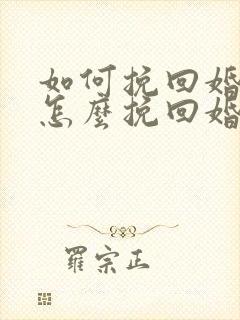 如何挽回婚
怎麼挽回婚
羅宗正